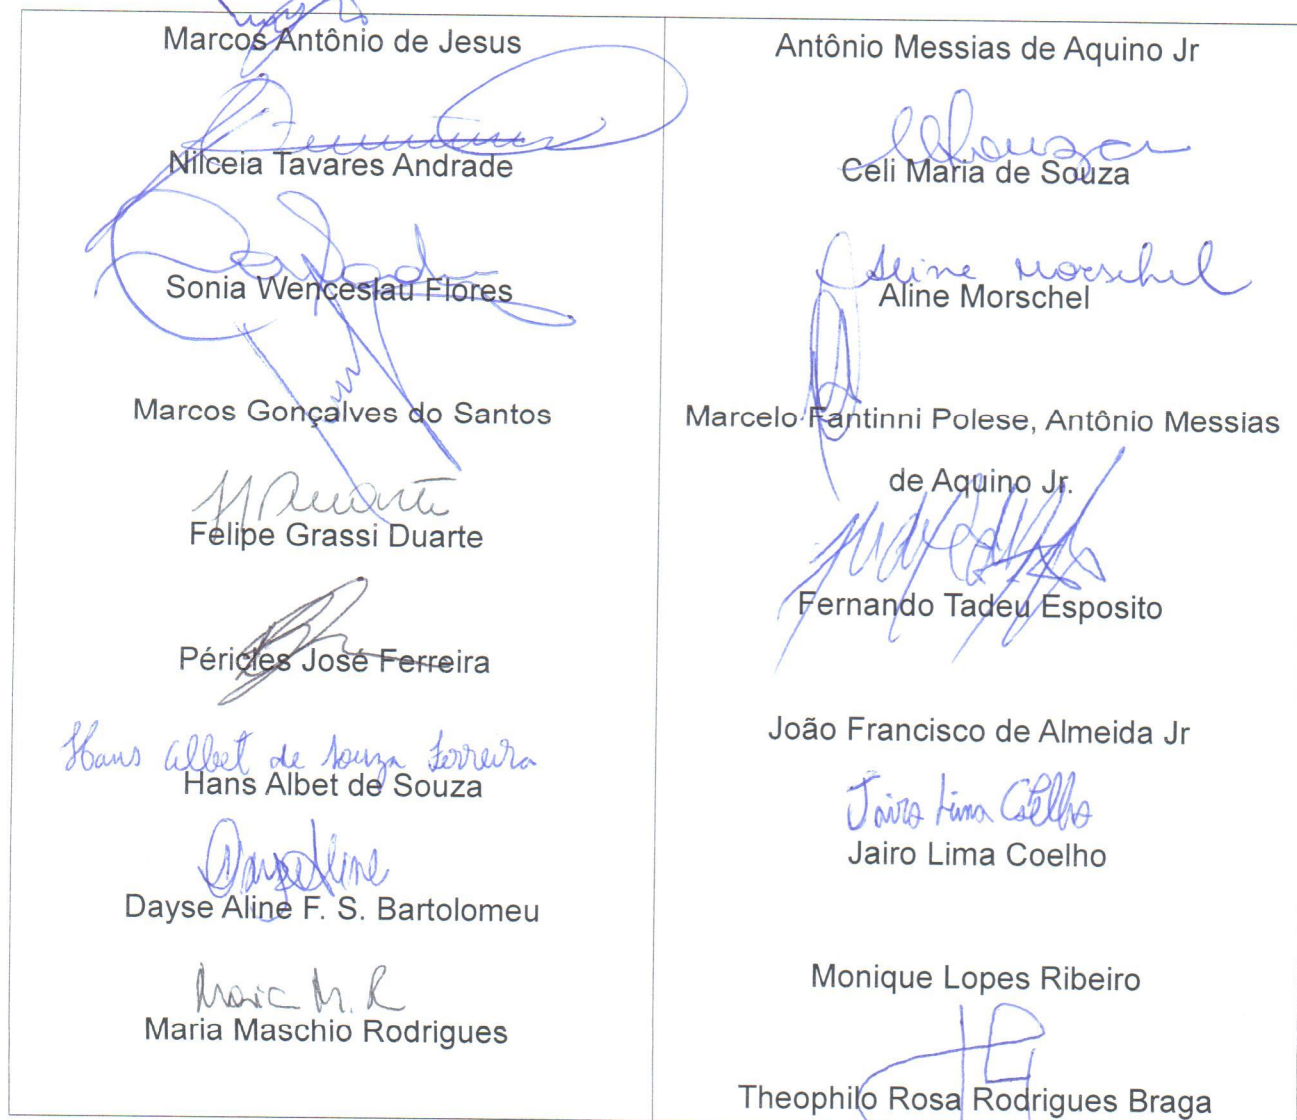 Marcos Antônio de Jesus
Nilceia Tavares Andrade
Sonia Wenceslau Flores
Marcos Gonçalves do Santos
Felipe Grassi Duarte
Péricles José Ferreira
Hans Albet de Souza Ferreira
Hans Albet de Souza
Dayse Aline
Dayse Aline F. S. Bartolomeu
Maria M. R
Maria Maschio Rodrigues
Antônio Messias de Aquino Jr
Celi Maria de Souza
Aline Morschel
Aline Morschel
Marcelo Fantinni Polese, Antônio Messias
de Aquino Jr.
Fernando Tadeu Esposito
João Francisco de Almeida Jr
Jairo Lima Coelho
Jairo Lima Coelho
Monique Lopes Ribeiro
Theophilo Rosa Rodrigues Braga